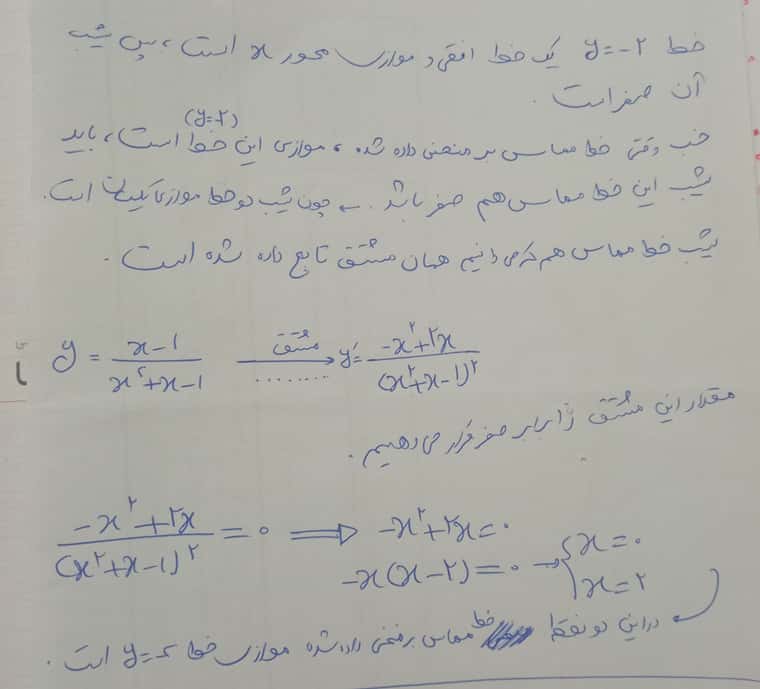 خط y=-۲ یک خط افقی و موازی محور x است، پس شیب
آن صفر است.
(y=۲)
خب وقتی خط مماس بر منحنی داده شده، موازی این خط است، باید
شیب این خط مماس هم صفر باشد. ← چون شیب دو خط موازی یکسان است.
شیب خط مماس هم که می دانیم همان مشتق تابع داده شده است.
y = (x-1)/(x²+x-1) مشتق → y' = (-x²+۲x)/(x²+x-1)²
مقدار این مشتق را برابر صفر قرار می دهیم.
(-x²+۲x)/(x²+x-1)² = ۰ ⇒ -x²+۲x=۰
-x(x-۲)=۰ → { x=۰
x=۲
در این دو نقطه خط مماس بر منحنی داده شده موازی خط y=-۲ است.